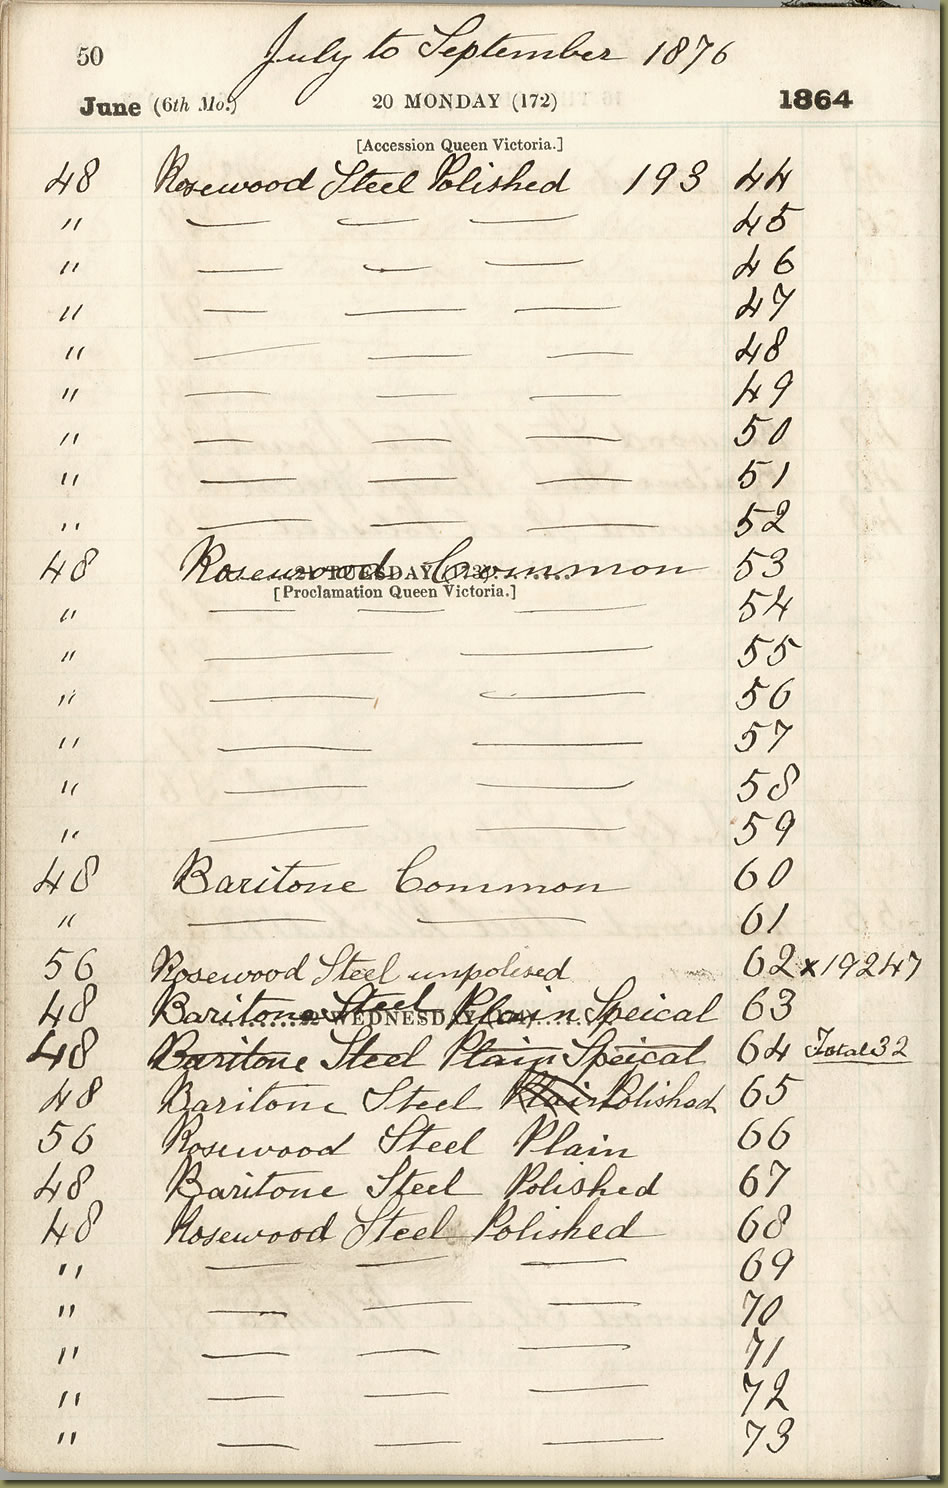 50 July to September 1876
June (6th Mo.) 20 MONDAY (172) 1864
[Accession Queen Victoria.]
48 Rosewood Steel Polished 193 44
" — — — 45
" — — — 46
" — — — 47
" — — — 48
" — — — 49
" — — — 50
" — — — 51
" — — — 52
48 Rosewood Common 53
21 TUESDAY (173)
[Proclamation Queen Victoria.]
" — — — 54
" — — 55
" — — 56
" — — 57
" — — 58
" — — 59
48 Baritone Common 60
" — — 61
56 Rosewood Steel unpolised 62 x 19247
48 Baritone Steel Plain Speical 63
22 WEDNESDAY (174)
48 Baritone Steel Plain Speical 64 Total 32
48 Baritone Steel Plain Polished 65
56 Rosewood Steel Plain 66
48 Baritone Steel Polished 67
48 Rosewood Steel Polished 68
" — — — 69
" — — — 70
" — — — 71
" — — — 72
" — — — 73